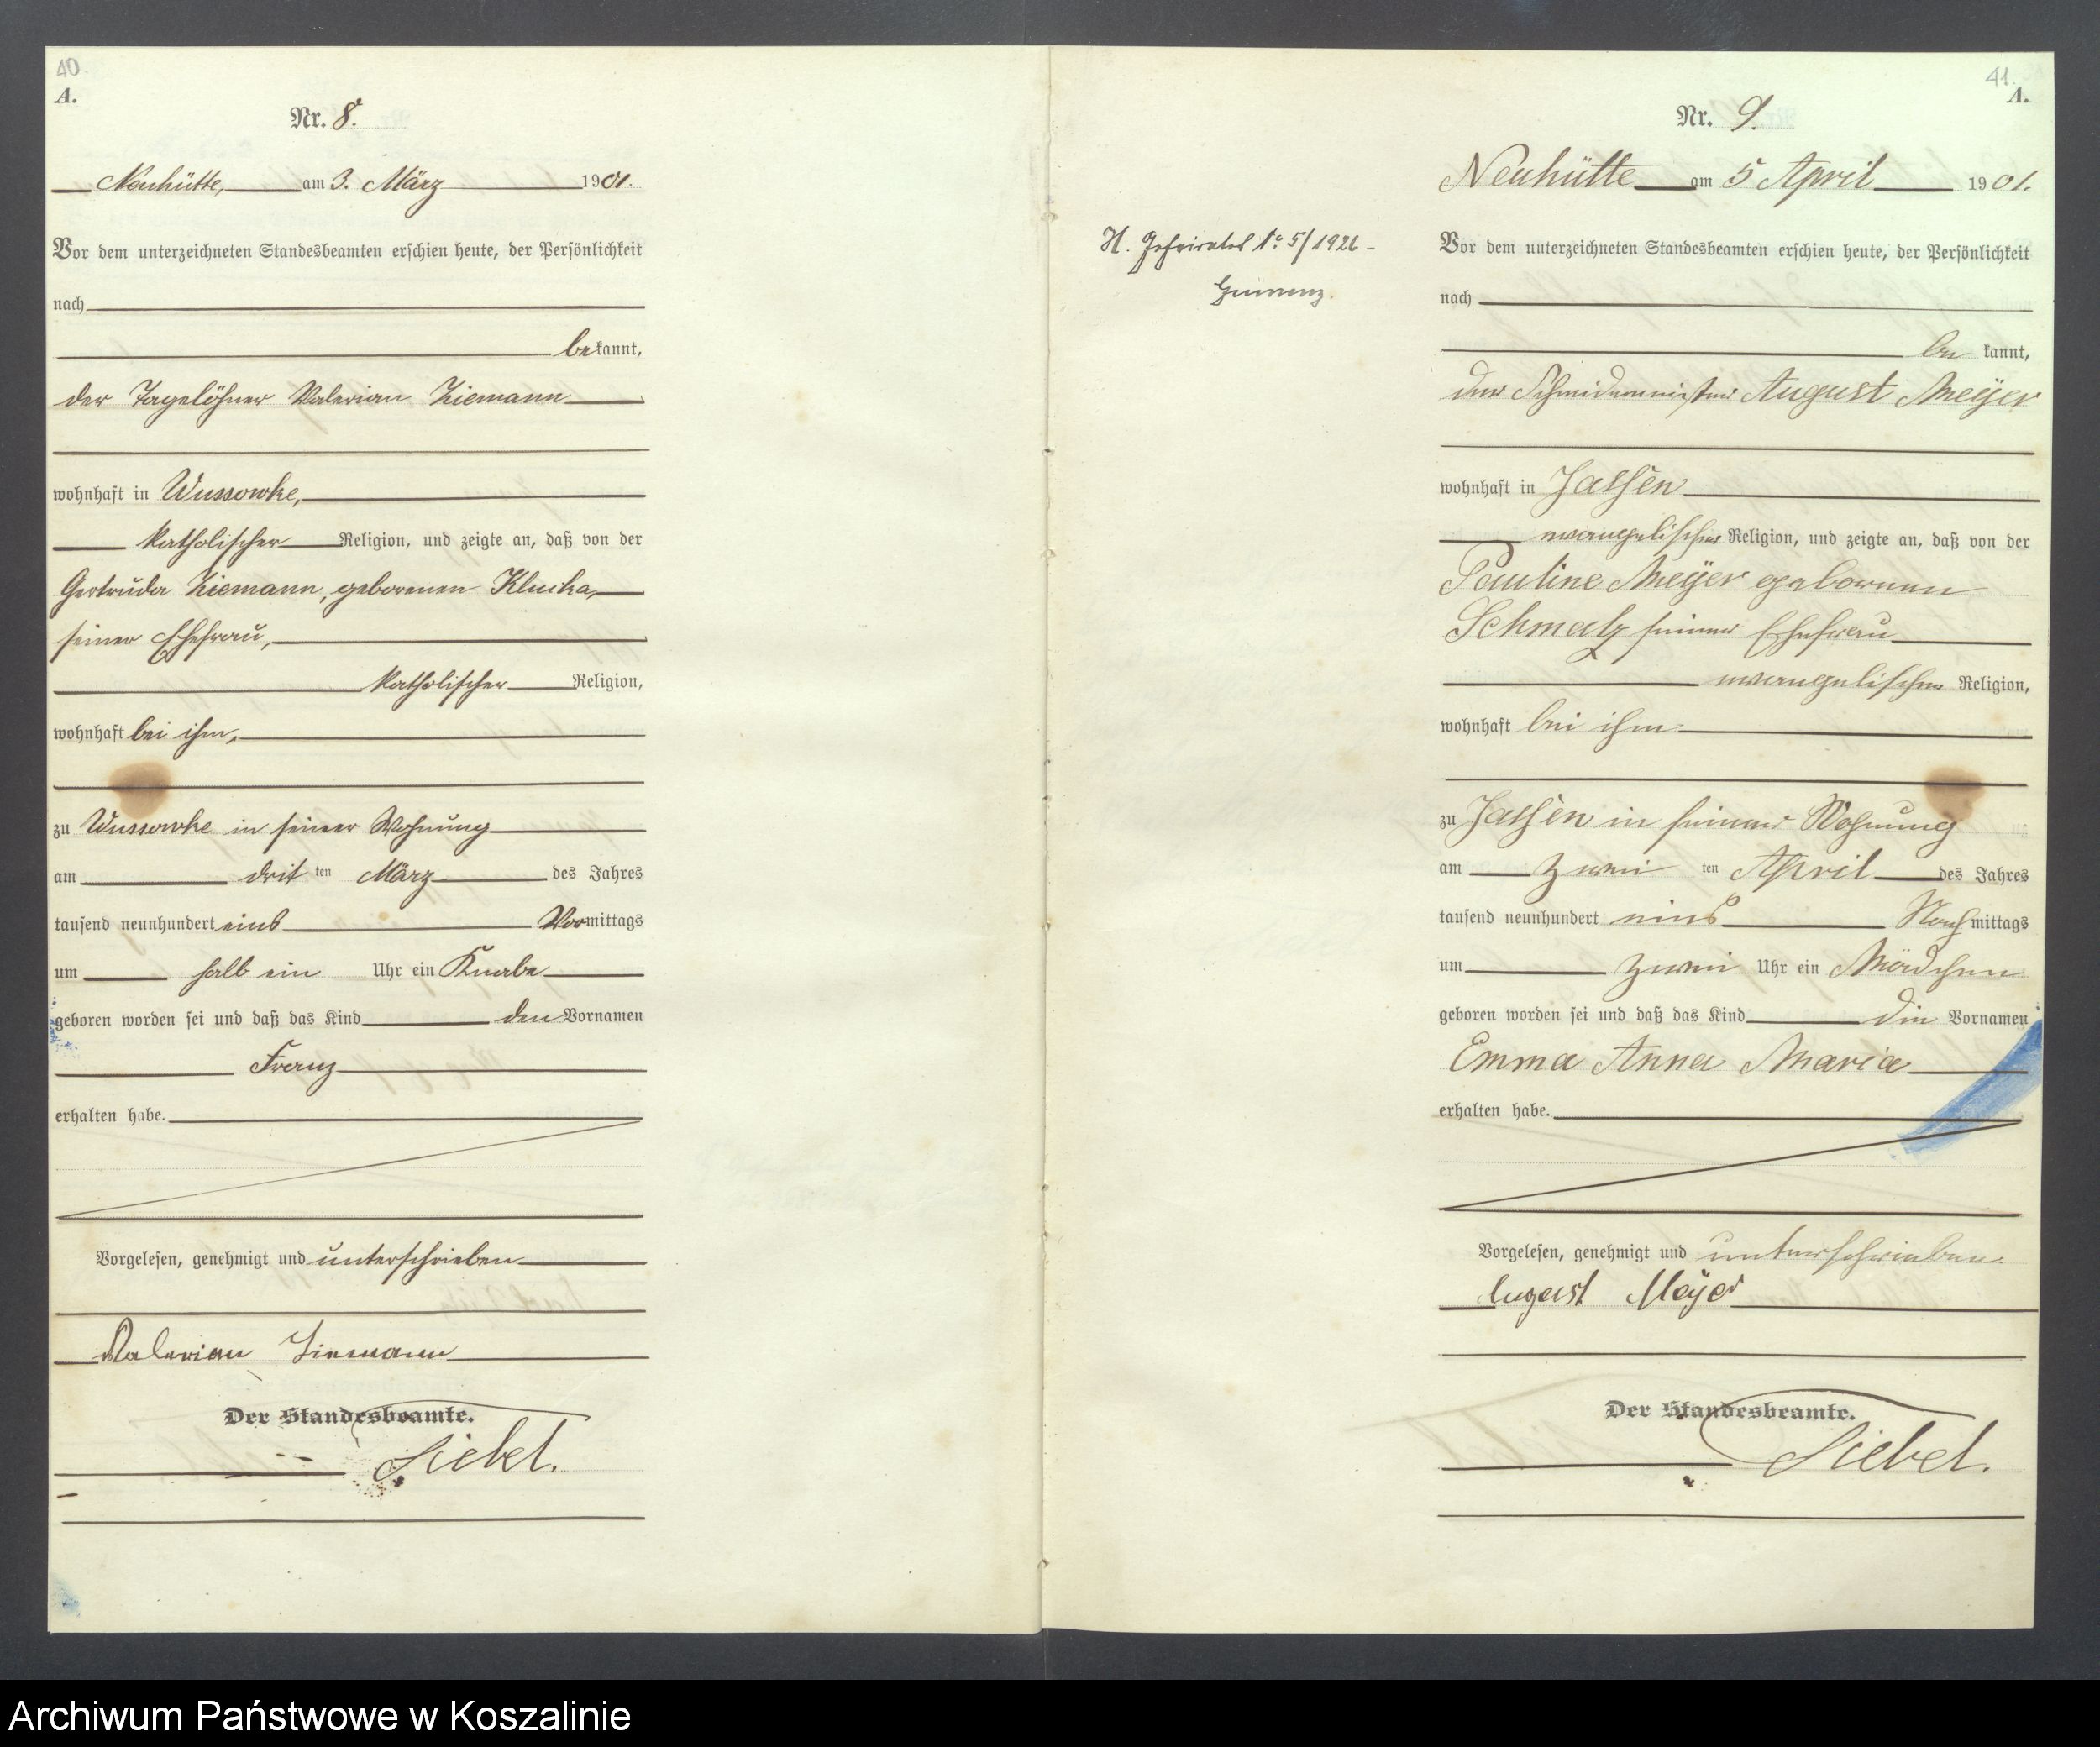 40.
A.
Nr. 8.
Neuhütte, am 3. März 1901.
Vor dem unterzeichneten Standesbeamten erschien heute, der Persönlichkeit
nach
bekannt,
der Tagelöhner Valerian Ziemann
wohnhaft in Wussowke,
katholischer Religion, und zeigte an, daß von der
Gertruda Ziemann, geborenen Klucka,
seiner Ehefrau,
katholischer Religion,
wohnhaft bei ihm,
zu Wussowke in seiner Wohnung
am dritten März des Jahres
tausend neunhundert eins Vormittags
um halb ein Uhr ein Knabe
geboren worden sei und daß das Kind den Vornamen
Franz
erhalten habe.
Vorgelesen, genehmigt und unterschrieben
Valerian Ziemann
Der Standesbeamte.
Siebel.
41.
A.
Nr. 9.
Neuhütte am 5 April 1901.
H. 1° 5/1926 -
Vor dem unterzeichneten Standesbeamten erschien heute, der Persönlichkeit
nach
bekannt,
der Schmiedemeister August Meÿer
wohnhaft in Jassen
evangelischer Religion, und zeigte an, daß von der
Pauline Meÿer geborenen
Schmalz seiner Ehefrau
evangelischer Religion,
wohnhaft bei ihm
zu Jassen in seiner Wohnung
am zweiten April des Jahres
tausend neunhundert eins Nachmittags
um zwei Uhr ein Mädchen
geboren worden sei und daß das Kind die Vornamen
Emma Anna Maria
erhalten habe.
Vorgelesen, genehmigt und unterschrieben.
August Meÿer
Der Standesbeamte.
Siebel.
Archiwum Państwowe w Koszalinie